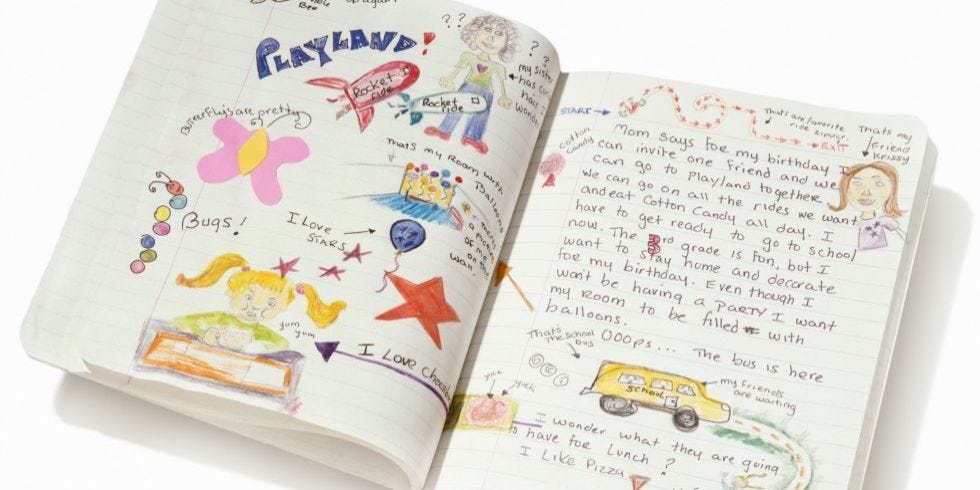 Bee
up again
PLAYLAND!
? ?
?
?
my sister
has curly
hair -
wonder
Rocket
ride
Rocket
ride
Butterflys are pretty
thats my room with
Balloons
theres
a picture
of me
on the
wall.
Bugs!
I Love
STARS
yum
yum
I Love
START
Thats are favorite
ride zipper.
EXIT
Thats my
friend
Krissy
cotton
candy
Mom says for my birthday I
can invite one friend and we
can go to Playland together.
we can go on all the rides we want
and eat Cotton Candy all day. I
have to get ready to go to school
now. The 3rd grade is fun, but I
want to stay home and decorate
for my birthday. Even though I
won't be having a PARTY I want
my room to be filled with
balloons.
Thats
the school
bus
OOOps... The bus is here
school
my friends
are waiting
yuck
yuck
I wonder what they are going
to have for Lunch?
I Like Pizza